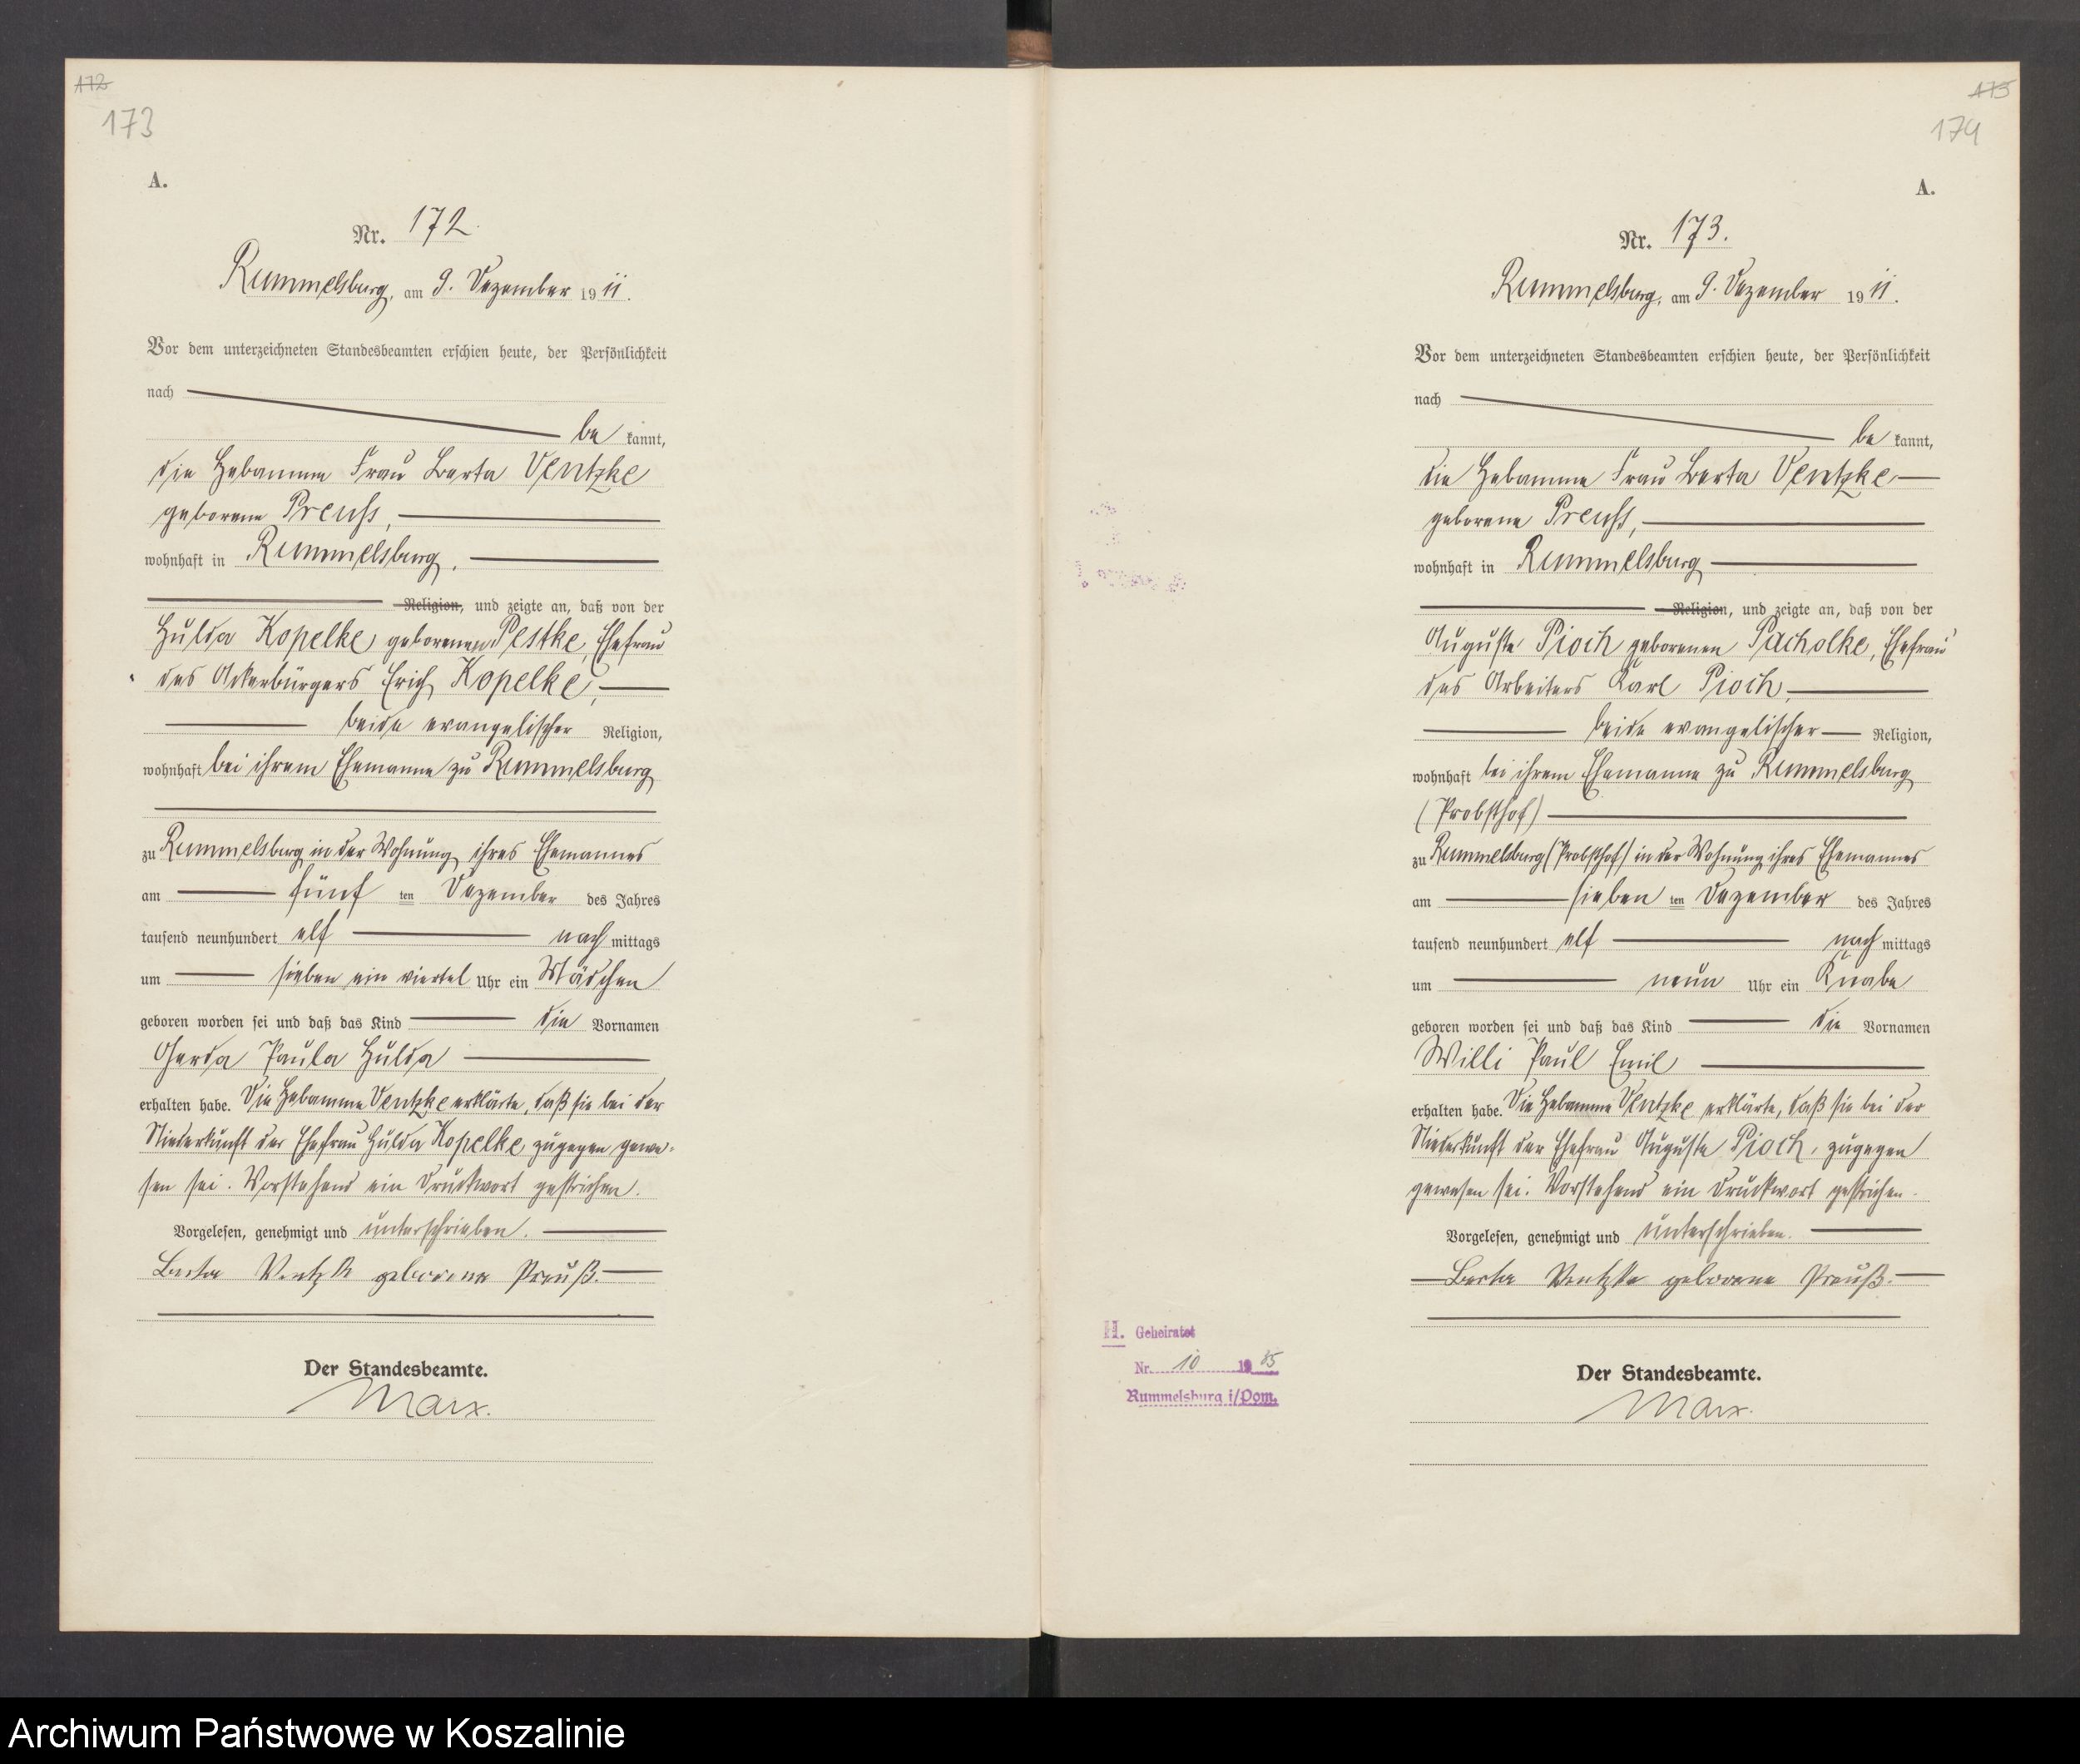 172
173
A.
Nr. 172.
Rummelsburg, am 9. Dezember 1911.
Vor dem unterzeichneten Standesbeamten erschien heute, der Persönlichkeit
nach
be kannt,
die Hebamme Frau Berta Ventzke
geborene Preuss,
wohnhaft in Rummelsburg,
Religion, und zeigte an, daß von der
Hulda Kopelke geborenen Pestke, Ehefrau
des Ackerbürgers Erich Kopelke,
beide evangelischer Religion,
wohnhaft bei ihrem Ehemanne zu Rummelsburg
zu Rummelsburg in der Wohnung ihres Ehemannes
am fünf ten Dezember des Jahres
tausend neunhundert elf nach mittags
um sieben ein viertel Uhr ein Mädchen
geboren worden sei und daß das Kind die Vornamen
Gerda Paula Hulda
erhalten habe. Die Hebamme Ventzke erklärte, daß sie bei der
Niederkunft der Ehefrau Hulda Kopelke zugegen gewe-
sen sei. Vorstehend ein Druckwort gestrichen.
Vorgelesen, genehmigt und unterschrieben.
Berta Ventzke geborene Preuß.
Der Standesbeamte.
Marx.
173
174
A.
Nr. 173.
Rummelsburg, am 9. Dezember 1911.
Vor dem unterzeichneten Standesbeamten erschien heute, der Persönlichkeit
nach
be kannt,
die Hebamme Frau Berta Ventzke
geborene Preuss,
wohnhaft in Rummelsburg
Religion, und zeigte an, daß von der
Auguste Pioch geborenen Pacholke, Ehefrau
des Arbeiters Karl Pioch,
beide evangelischer Religion,
wohnhaft bei ihrem Ehemanne zu Rummelsburg
(Probsthof)
zu Rummelsburg (Probsthof) in der Wohnung ihres Ehemannes
am sieben ten Dezember des Jahres
tausend neunhundert elf nach mittags
um neun Uhr ein Knabe
geboren worden sei und daß das Kind die Vornamen
Willi Paul Emil
erhalten habe. Die Hebamme Ventzke erklärte, daß sie bei der
Niederkunft der Ehefrau Auguste Pioch, zugegen
gewesen sei. Vorstehend ein Druckwort gestrichen.
Vorgelesen, genehmigt und unterschrieben.
Berta Ventzke geborene Preuß.
H. Geheiratet
Nr. 10 19 35
Rummelsburg i/Pom.
Der Standesbeamte.
Marx.
Archiwum Państwowe w Koszalinie